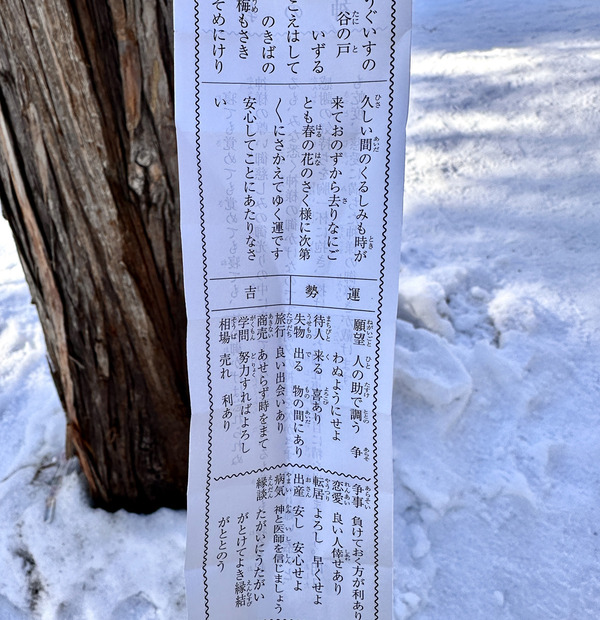 うぐいすの
谷の戸
いずる
こえはして
のきばの
梅もさき
そめにけり
久しい間のくるしみも時が
来ておのずから去りなにご
とも春の花のさく様に次第
〱にさかえてゆく運です
安心してことにあたりなさ
い
運勢 吉
願望 人の助で調う 争
わぬようにせよ
待人 来る 喜あり
失物 出る 物の間にあり
旅行 良い出会いあり
商売 あせらず時をまて
学問 努力すればよろし
相場 売れ 利あり
争事 負けておく方が利あり
恋愛 良い人倖せあり
転居 よろし 早くせよ
出産 安し 安心せよ
病気 神と医師を信じましょう
縁談 たがいにうたがい
がとけてよき縁結
がととのう